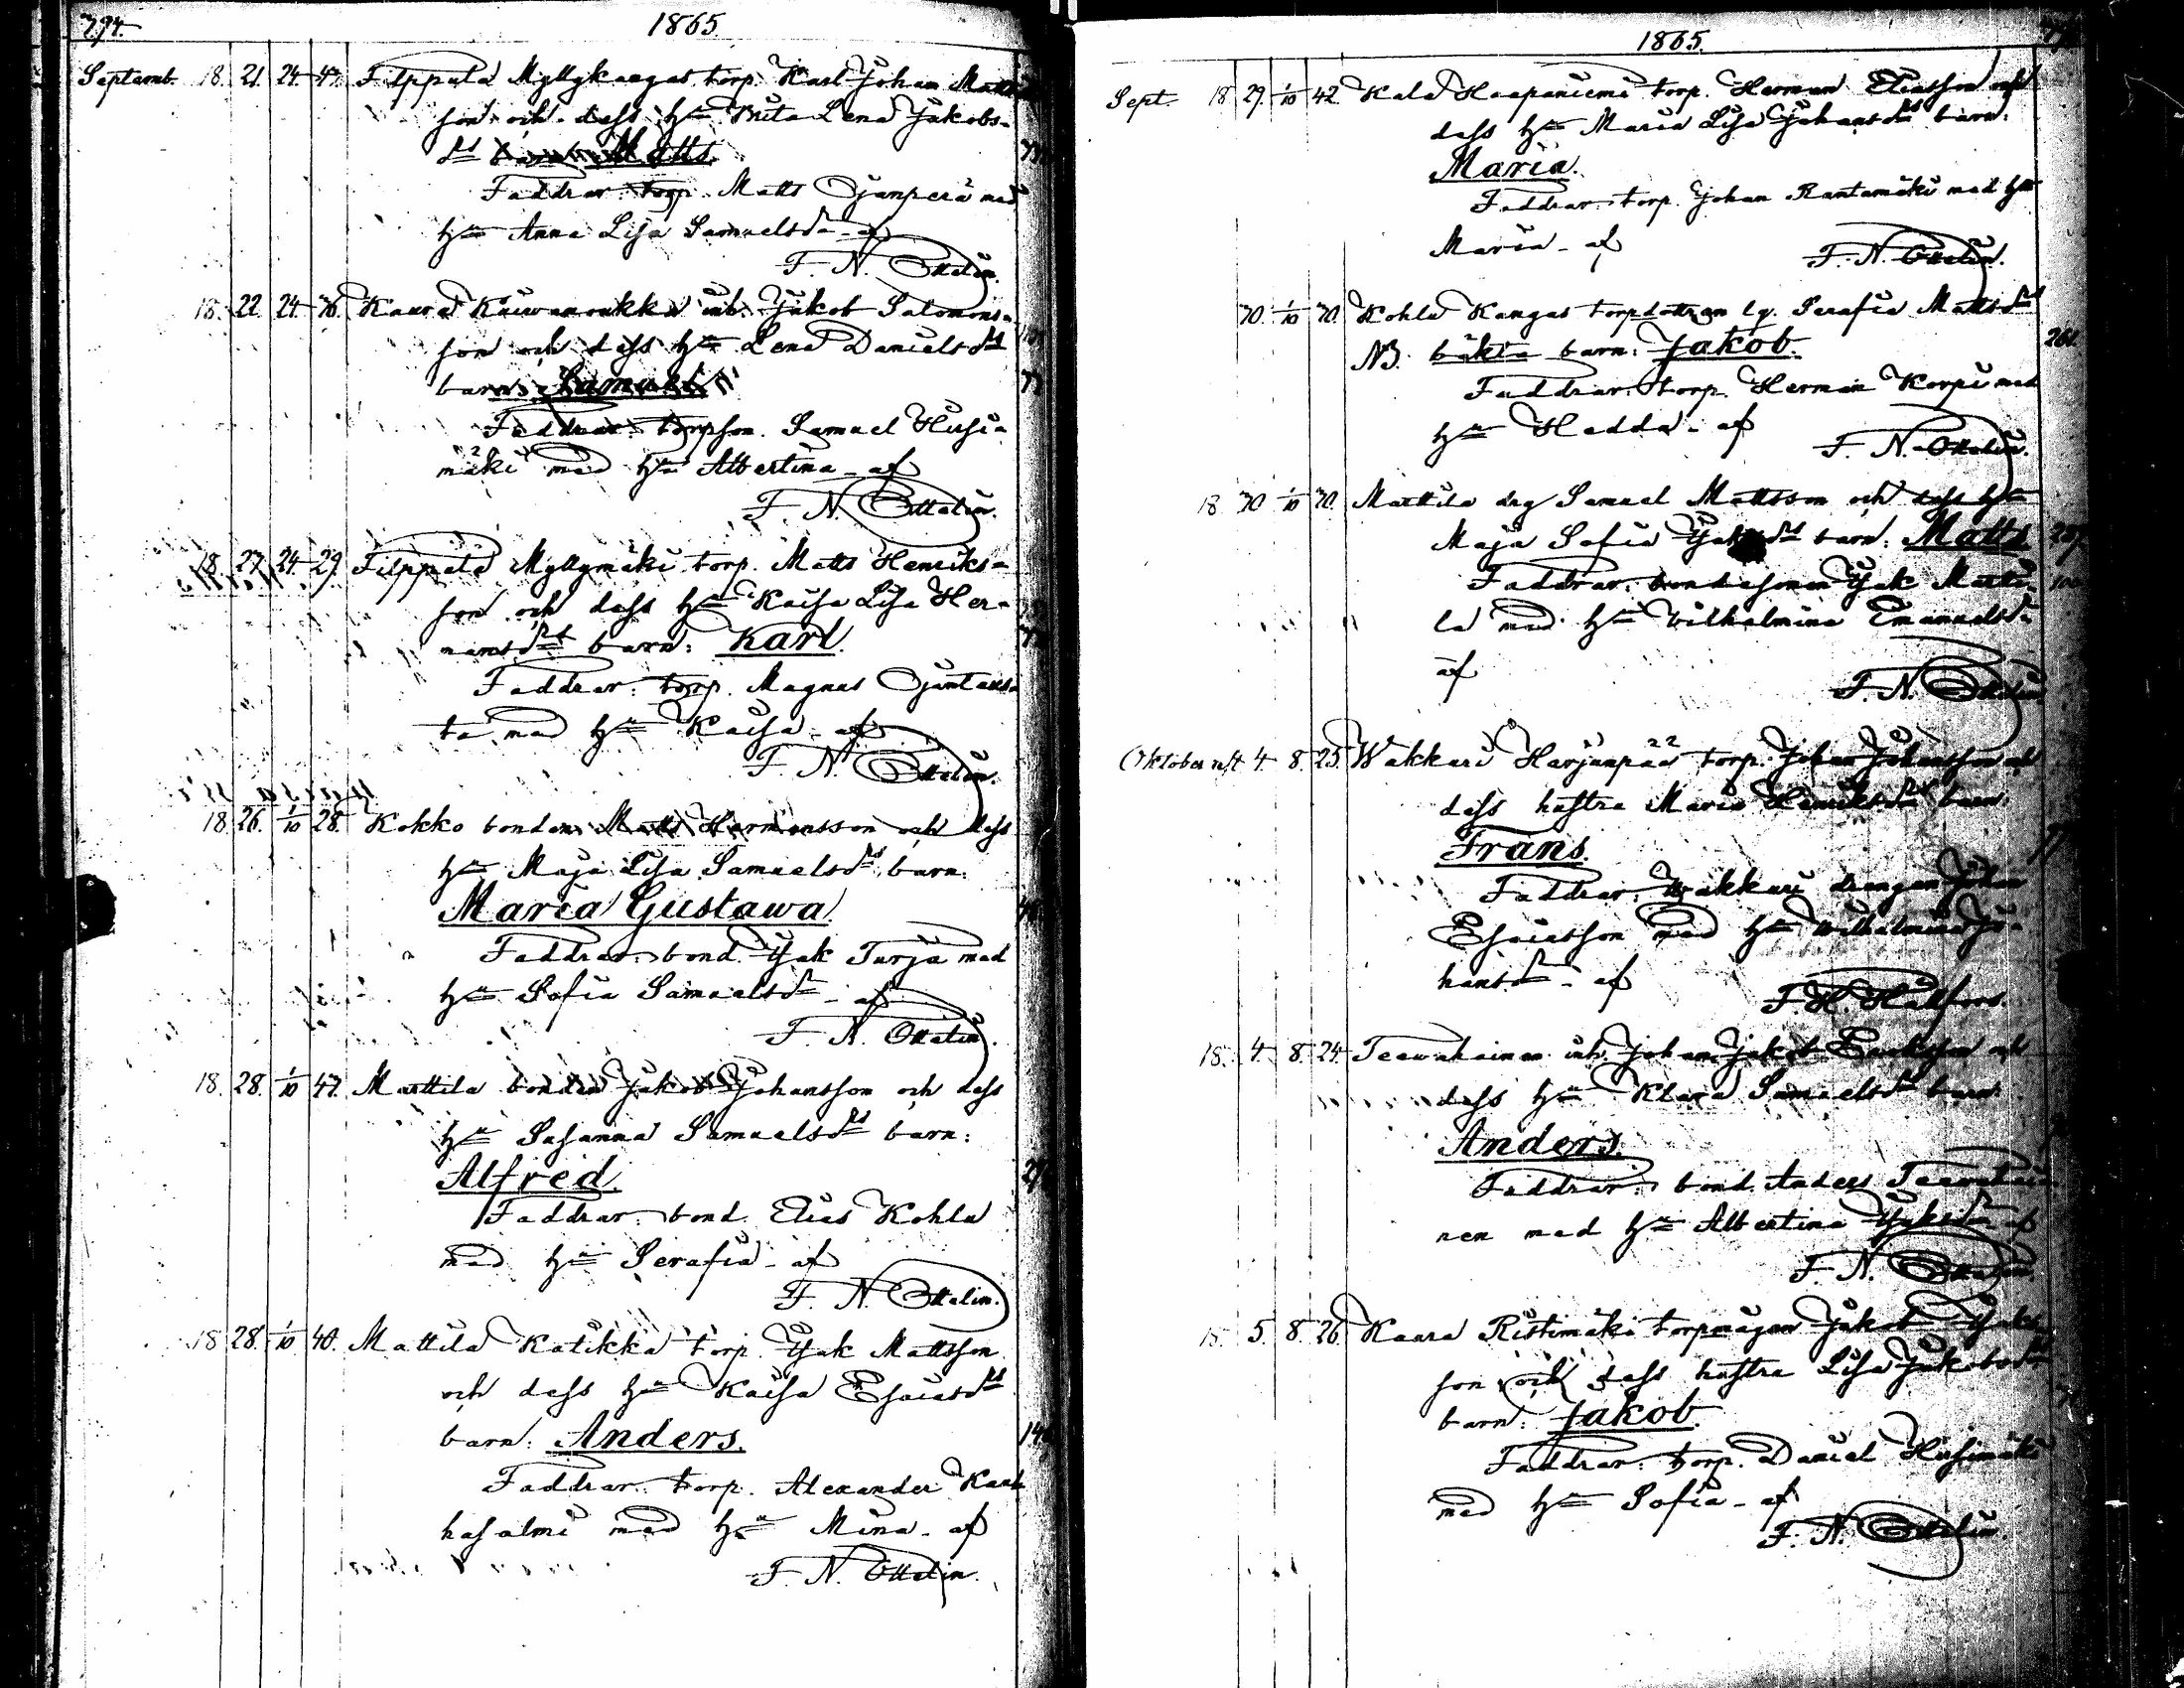 294.
1865.
Septemb. 18. 21. 24. 47. Filppula Myllykangas torp. Karl Johan Matts
son och dess Hu Brita Lena Jakobs-
dr barn: Matts.
Faddrar: torp. Matts Ojanperä med
Hu Anna Lisa Samuelsdr - af
F. N. Ottelin.
18. 22. 24. 36. Kaura inh. Jakob Salomons-
son och dess Hu Lena Danielsdr
barn: Samuel.
Faddrar: torpson. Samuel Husi-
mäki med Hu Albertina - af
F. N. Ottelin.
18. 23. 24. 29. Filppula Myllymäki torp. Matts Henriks-
son och dess Hu Kaisa Lisa Her-
mansdr barn: Karl.
Faddrar: torp. Magnus Ojantaus-
ta med Hu Kaisa - af
F. N. Ottelin.
18. 26. 1/10 28. Kokko bonden Matts Hermansson och dess
Hu Maja Lisa Samuelsdr barn:
Maria Gustawa.
Faddrar: bond. Jak Turja med
Hu Sofia Samuelsdr - af
F. N. Ottelin.
18. 28. 1/10 47. Mattila bonden Jakob Johansson och dess
Hu Susanna Samuelsdr barn:
Alfred.
Faddrar: bond. Elias Kohla
med Hu Serafia - af
F. N. Ottelin.
18 28. 1/10 40. Mattila Katikka torp. Jak Mattsson
och dess Hu Kaisa Esaiasdr
barn: Anders.
Faddrar: torp. Alexander Kan
hasalmi med Hu Mina - af
F. N. Ottelin.
1865.
Sept. 18 29. 1/10 42. Kala Haapaniemi torp. Herman Eliasson och
dess Hu Maria Lisa Johansdr barn:
Maria.
Faddrar: torp. Johan Rantamäki med Hu
Maria - af
F. N. Ottelin.
30. 1/10 30. Kohla Kangas torpdottren lg. Serafia Mattsdr
NB. oäkta barn: Jakob. 261.
Faddrar: torp. Herman Korpi med
Hu Hedda - af
F. N. Ottelin.
18 30 1/10 30. Mattila drg Samuel Mattsson och dess Hu
Maja Sofia dr barn: Matts
Faddrar: bondesonen Jak Matti-
la med Hu Wilhelmina Emanuelsdr
af
F. N. Ottelin
Oktober 4. 8. 25. Wakkuri Harjunpää torp. Johan Johansson och
dess hustru Maria Henriksdr barn:
Frans.
Faddrar: Wakkuri drengen Johan
Esaiasson med Hu Wilhelmina Jo-
hansdr - af
F. H. Hällfors.
18. 4. 8. 24. Teewahainen inh. Johan Jakob och
dess Hu Klara Samuelsdr barn:
Anders.
Faddrar: bond. Anders Teewahai-
nen med Hu Albertina Jaksdr - af
F. N. Ottelin.
18. 5. 8. 26. Kaara Ristimäki torpmågen Jakob Jaks-
son och dess hustru Lisa Jakobsdr
barn: Jakob.
Faddrar: torp. Daniel Husimäki
med Hu Sofia - af
F. N. Ottelin.